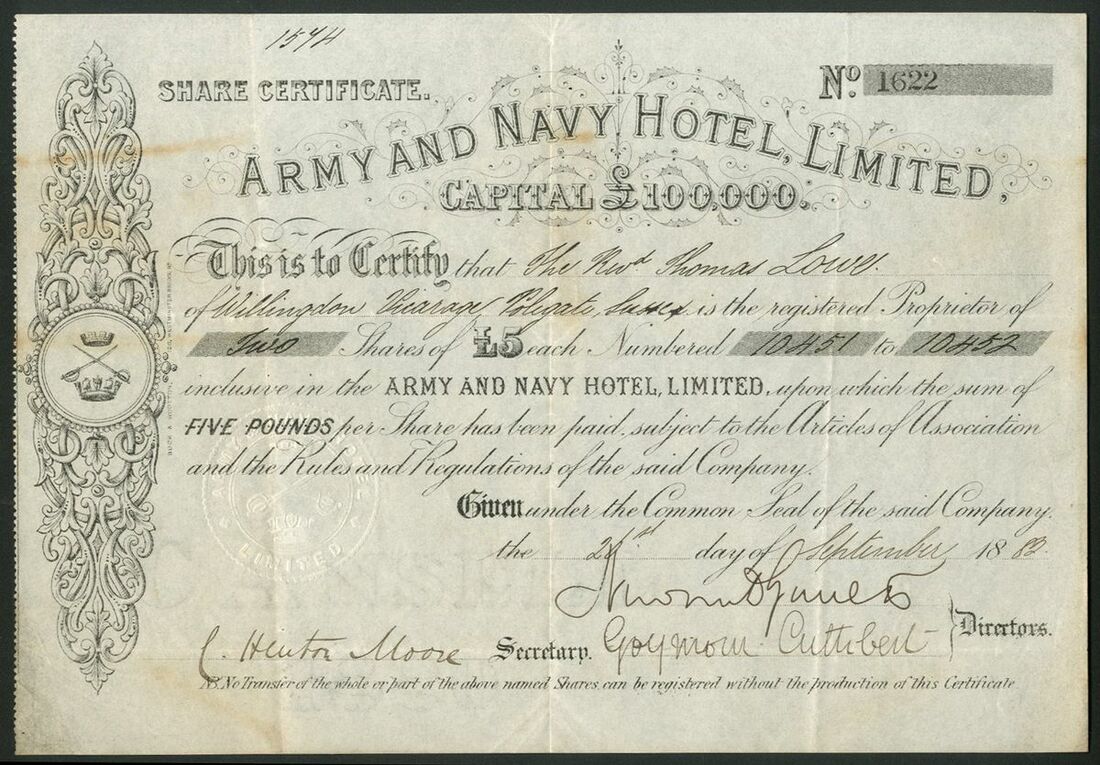 1574
SHARE CERTIFICATE.
No. 1622
ARMY AND NAVY HOTEL, LIMITED,
CAPITAL £100,000.
This is to Certify that The Revd Thomas Lowe.
of Willingdon Vicarage Polegate, Sussex is the registered Proprietor of
Two Shares of £5 each Numbered 10451 to 10452
inclusive in the ARMY AND NAVY HOTEL, LIMITED, upon which the sum of
FIVE POUNDS per Share has been paid, subject to the Articles of Association
and the Rules and Regulations of the said Company.
Given under the Common Seal of the said Company.
the day of September 1883.
C. Hinton Moore Secretary. Goymour Cuthbert Directors.
NB. No Transfer of the whole or part of the above named Shares can be registered without the production of this Certificate
LIMITED